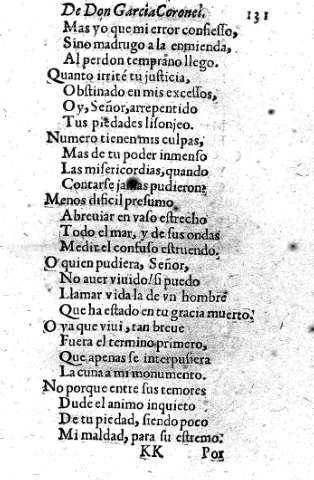 De Don Garcia Coronel. 131
Mas yo que mi error confiesso,
Sino madrugo a la enmienda,
Al perdon temprano llego.
Quanto irrité tu justicia,
Obstinado en mis excessos,
Oy, Señor, arrepentido
Tus piedades lisonjeo.
Numero tienen mis culpas,
Mas de tu poder inmenso
Las misericordias, quando
Contarse jamas pudieron?
Menos dificil presumo
Abreuiar en vaso estrecho
Todo el mar, y de sus ondas
Medir el confuso estruendo.
O quien pudiera, Señor,
No auer viuido! si puedo
Llamar vida la de vn hombre
Que ha estado en tu gracia muerto.
O ya que viui, tan breue
Fuera el termino primero,
Que apenas se interpusiera
La cuna a mi monumento.
No porque entre sus temores
Dude el animo inquieto
De tu piedad, siendo poco
Mi maldad, para su estremo.
KK Por